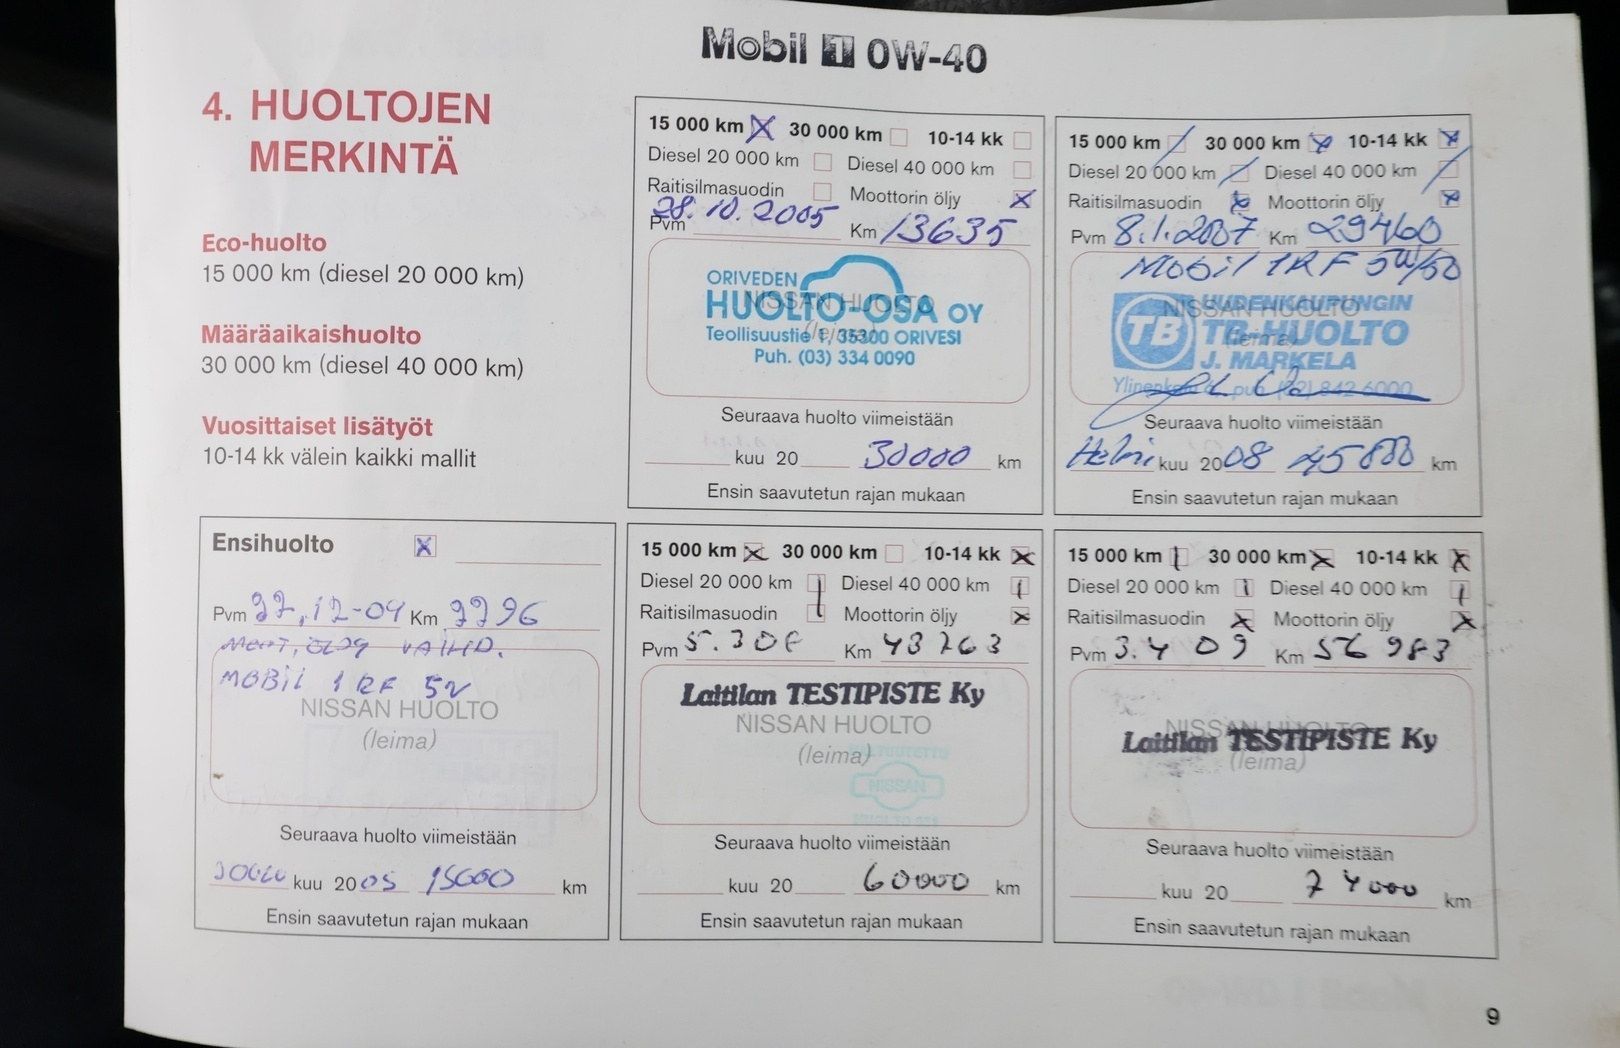 Mobil 1 0W-40
4. HUOLTOJEN
MERKINTÄ
Eco-huolto
15 000 km (diesel 20 000 km)
Määräaikaishuolto
30 000 km (diesel 40 000 km)
Vuosittaiset lisätyöt
10-14 kk välein kaikki mallit
15 000 km 30 000 km 10-14 kk
Diesel 20 000 km Diesel 40 000 km
Raitisilmasuodin Moottorin öljy
28.10.2005
Pvm Km 13635
ORIVEDEN
NISSAN HUOLTO
HUOLTO-OSA OY
(leima)
Teollisuustie 1, 35300 ORIVESI
Puh. (03) 334 0090
Seuraava huolto viimeistään
kuu 20 30000 km
Ensin saavutetun rajan mukaan
15 000 km 30 000 km 10-14 kk
Diesel 20 000 km Diesel 40 000 km
Raitisilmasuodin Moottorin öljy
Pvm 8.1.2007 Km 29460
Mobil 1RF 5W/50
NISSAN HUOLTO
UUDENKAUPUNGIN
TB TB-HUOLTO
(leima)
J. MARKELA
puh. (02) 842 6000
Seuraava huolto viimeistään
Helmi kuu 2008 45000 km
Ensin saavutetun rajan mukaan
Ensihuolto
Pvm 27.12-04 Km
VAIHD.
MOBiL 1 RF
NISSAN HUOLTO
(leima)
Seuraava huolto viimeistään
kuu 2005 15000 km
Ensin saavutetun rajan mukaan
15 000 km 30 000 km 10-14 kk
Diesel 20 000 km Diesel 40 000 km
Raitisilmasuodin Moottorin öljy
Pvm 5.3 08 Km 43263
Laitilan TESTIPISTE Ky
NISSAN HUOLTO
(leima)
NISSAN
Seuraava huolto viimeistään
kuu 20 60000 km
Ensin saavutetun rajan mukaan
15 000 km 30 000 km 10-14 kk
Diesel 20 000 km Diesel 40 000 km
Raitisilmasuodin Moottorin öljy
Pvm 3.4 09 Km 56 983
NISSAN HUOLTO
Laitilan TESTIPISTE Ky
(leima)
Seuraava huolto viimeistään
kuu 20 74000 km
Ensin saavutetun rajan mukaan
9